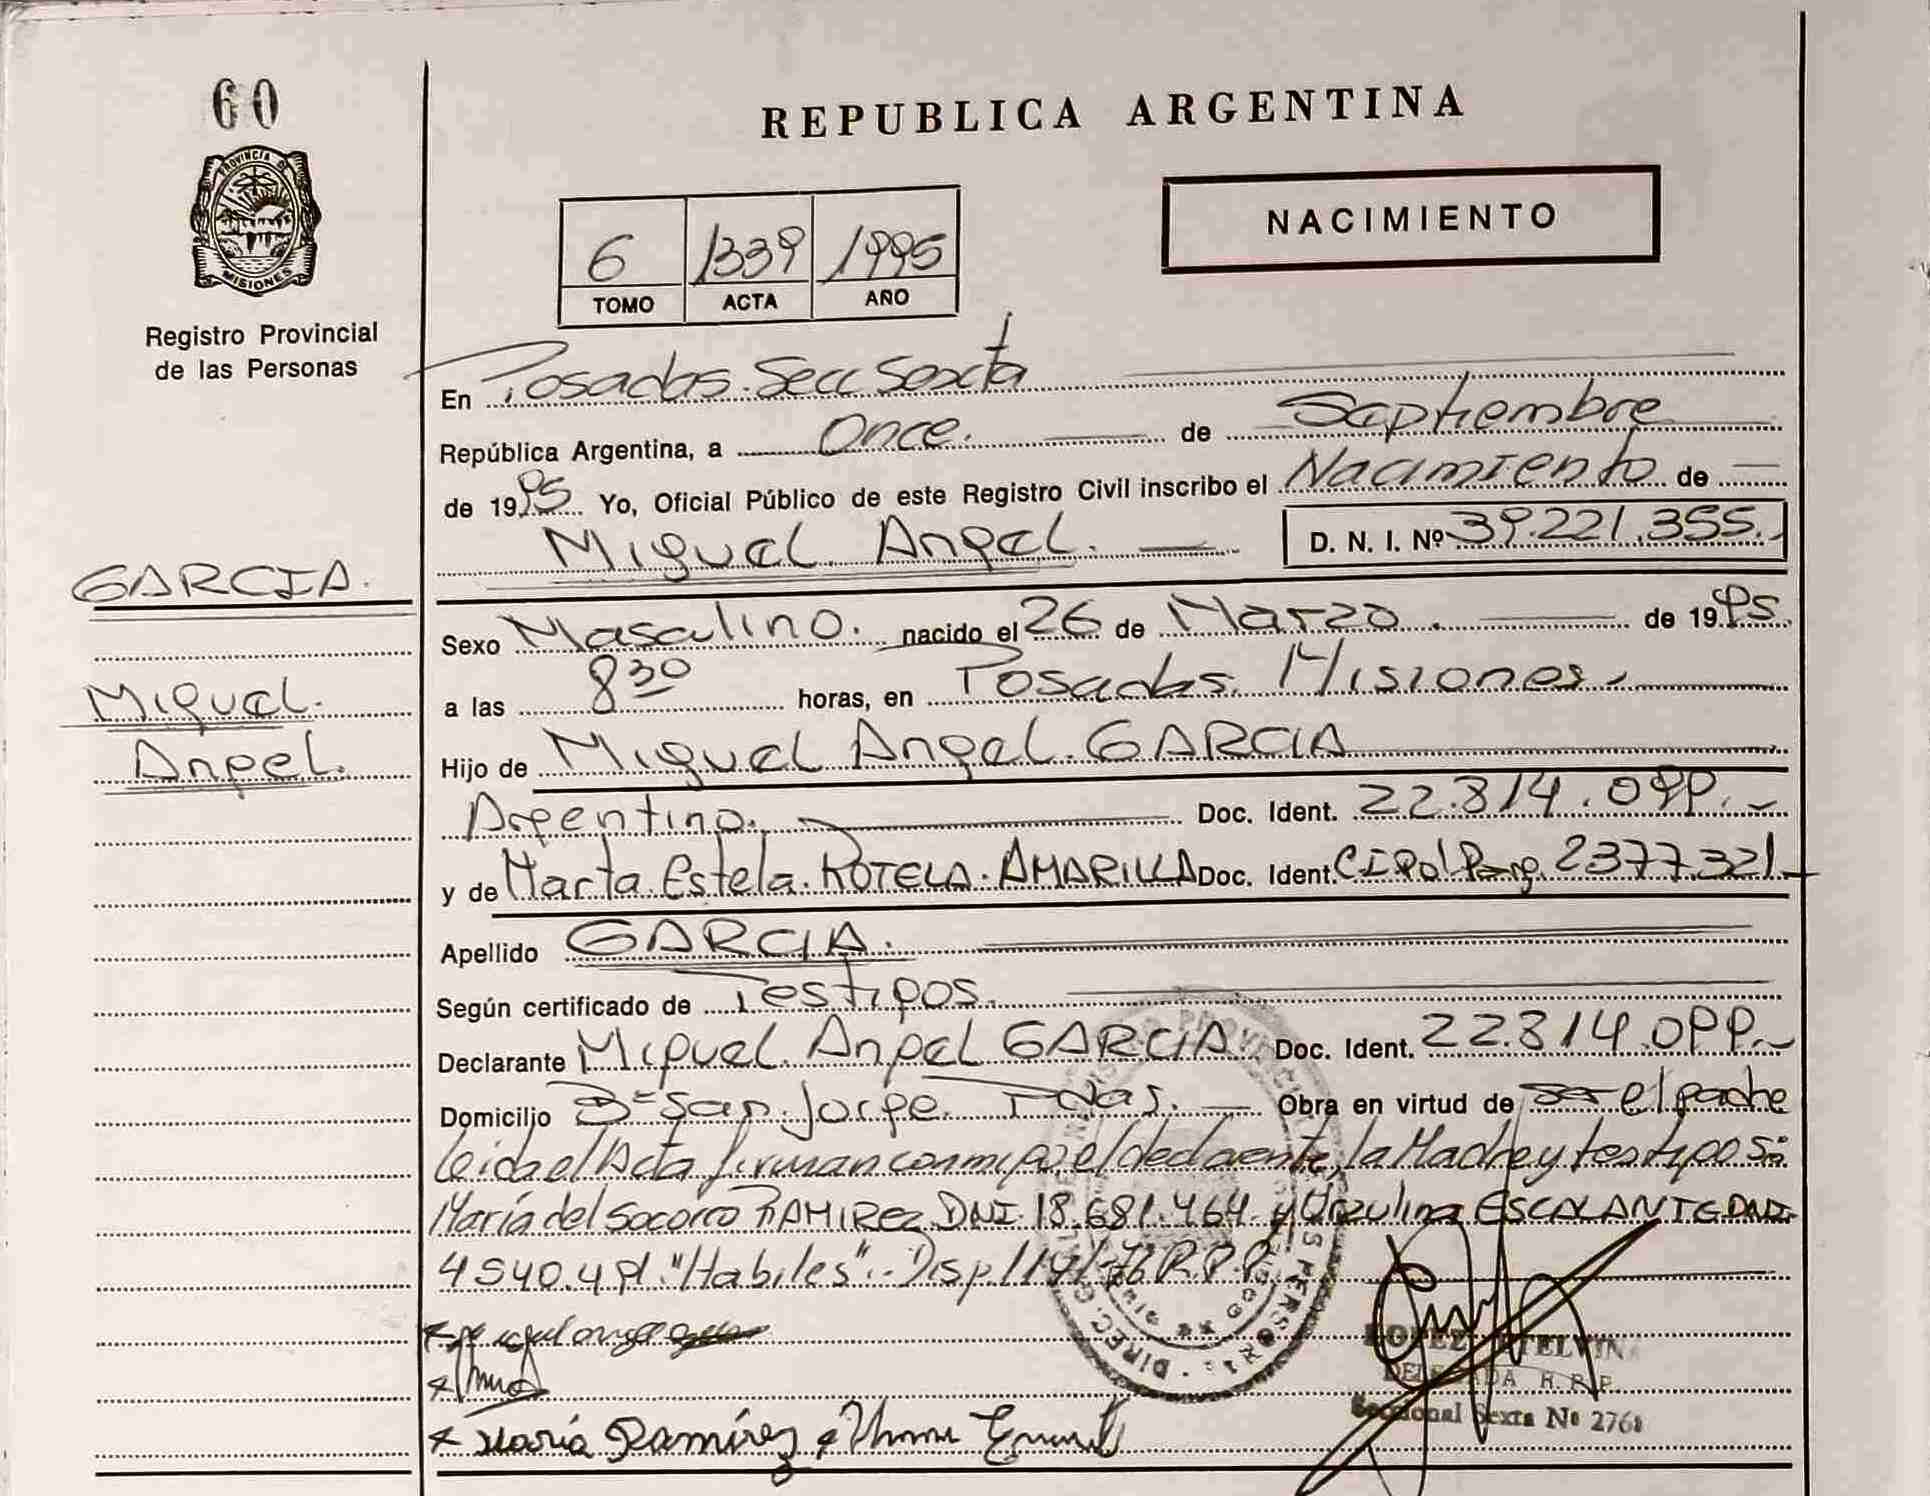 60
PROVINCIA DE
MISIONES
Registro Provincial
de las Personas
GARCIA.
Miguel
Angel.
REPUBLICA ARGENTINA
NACIMIENTO
6 1339 1995
TOMO ACTA AÑO
En Posadas. Secc Sexta
República Argentina, a Once. de Septiembre
de 1995 Yo, Oficial Público de este Registro Civil inscribo el Nacimiento de
Miguel Angel. D. N. I. Nº 39.221.355.
Sexo Masculino. nacido el 26 de Marzo. de 1995.
a las 8 30 horas, en Posadas. Misiones.
Hijo de Miguel Angel. GARCIA
Argentino. Doc. Ident. 22.814.099.
y de Marta Estela. ROTELA. AMARILLA Doc. Ident. CI Pol Parg. 2377.321
Apellido GARCIA.
Según certificado de Testigos.
Declarante Miguel. Angel GARCIA Doc. Ident. 22.814.099.
Domicilio Bº San Jorge. Pdas. Obra en virtud de ser el padre
leida el Acta firman conmigo el declarante, la Madre y testigos:
María del Socorro RAMIREZ DNI 18.681.464 y Urzulina ESCALANTE DNI.
4540.491. "Habiles".- Disp. 114/76 R.P.P.
María Ramírez
LOPEZ ETELVINA
DELEGADA R.P.P.
Seccional Sexta Nº 2768